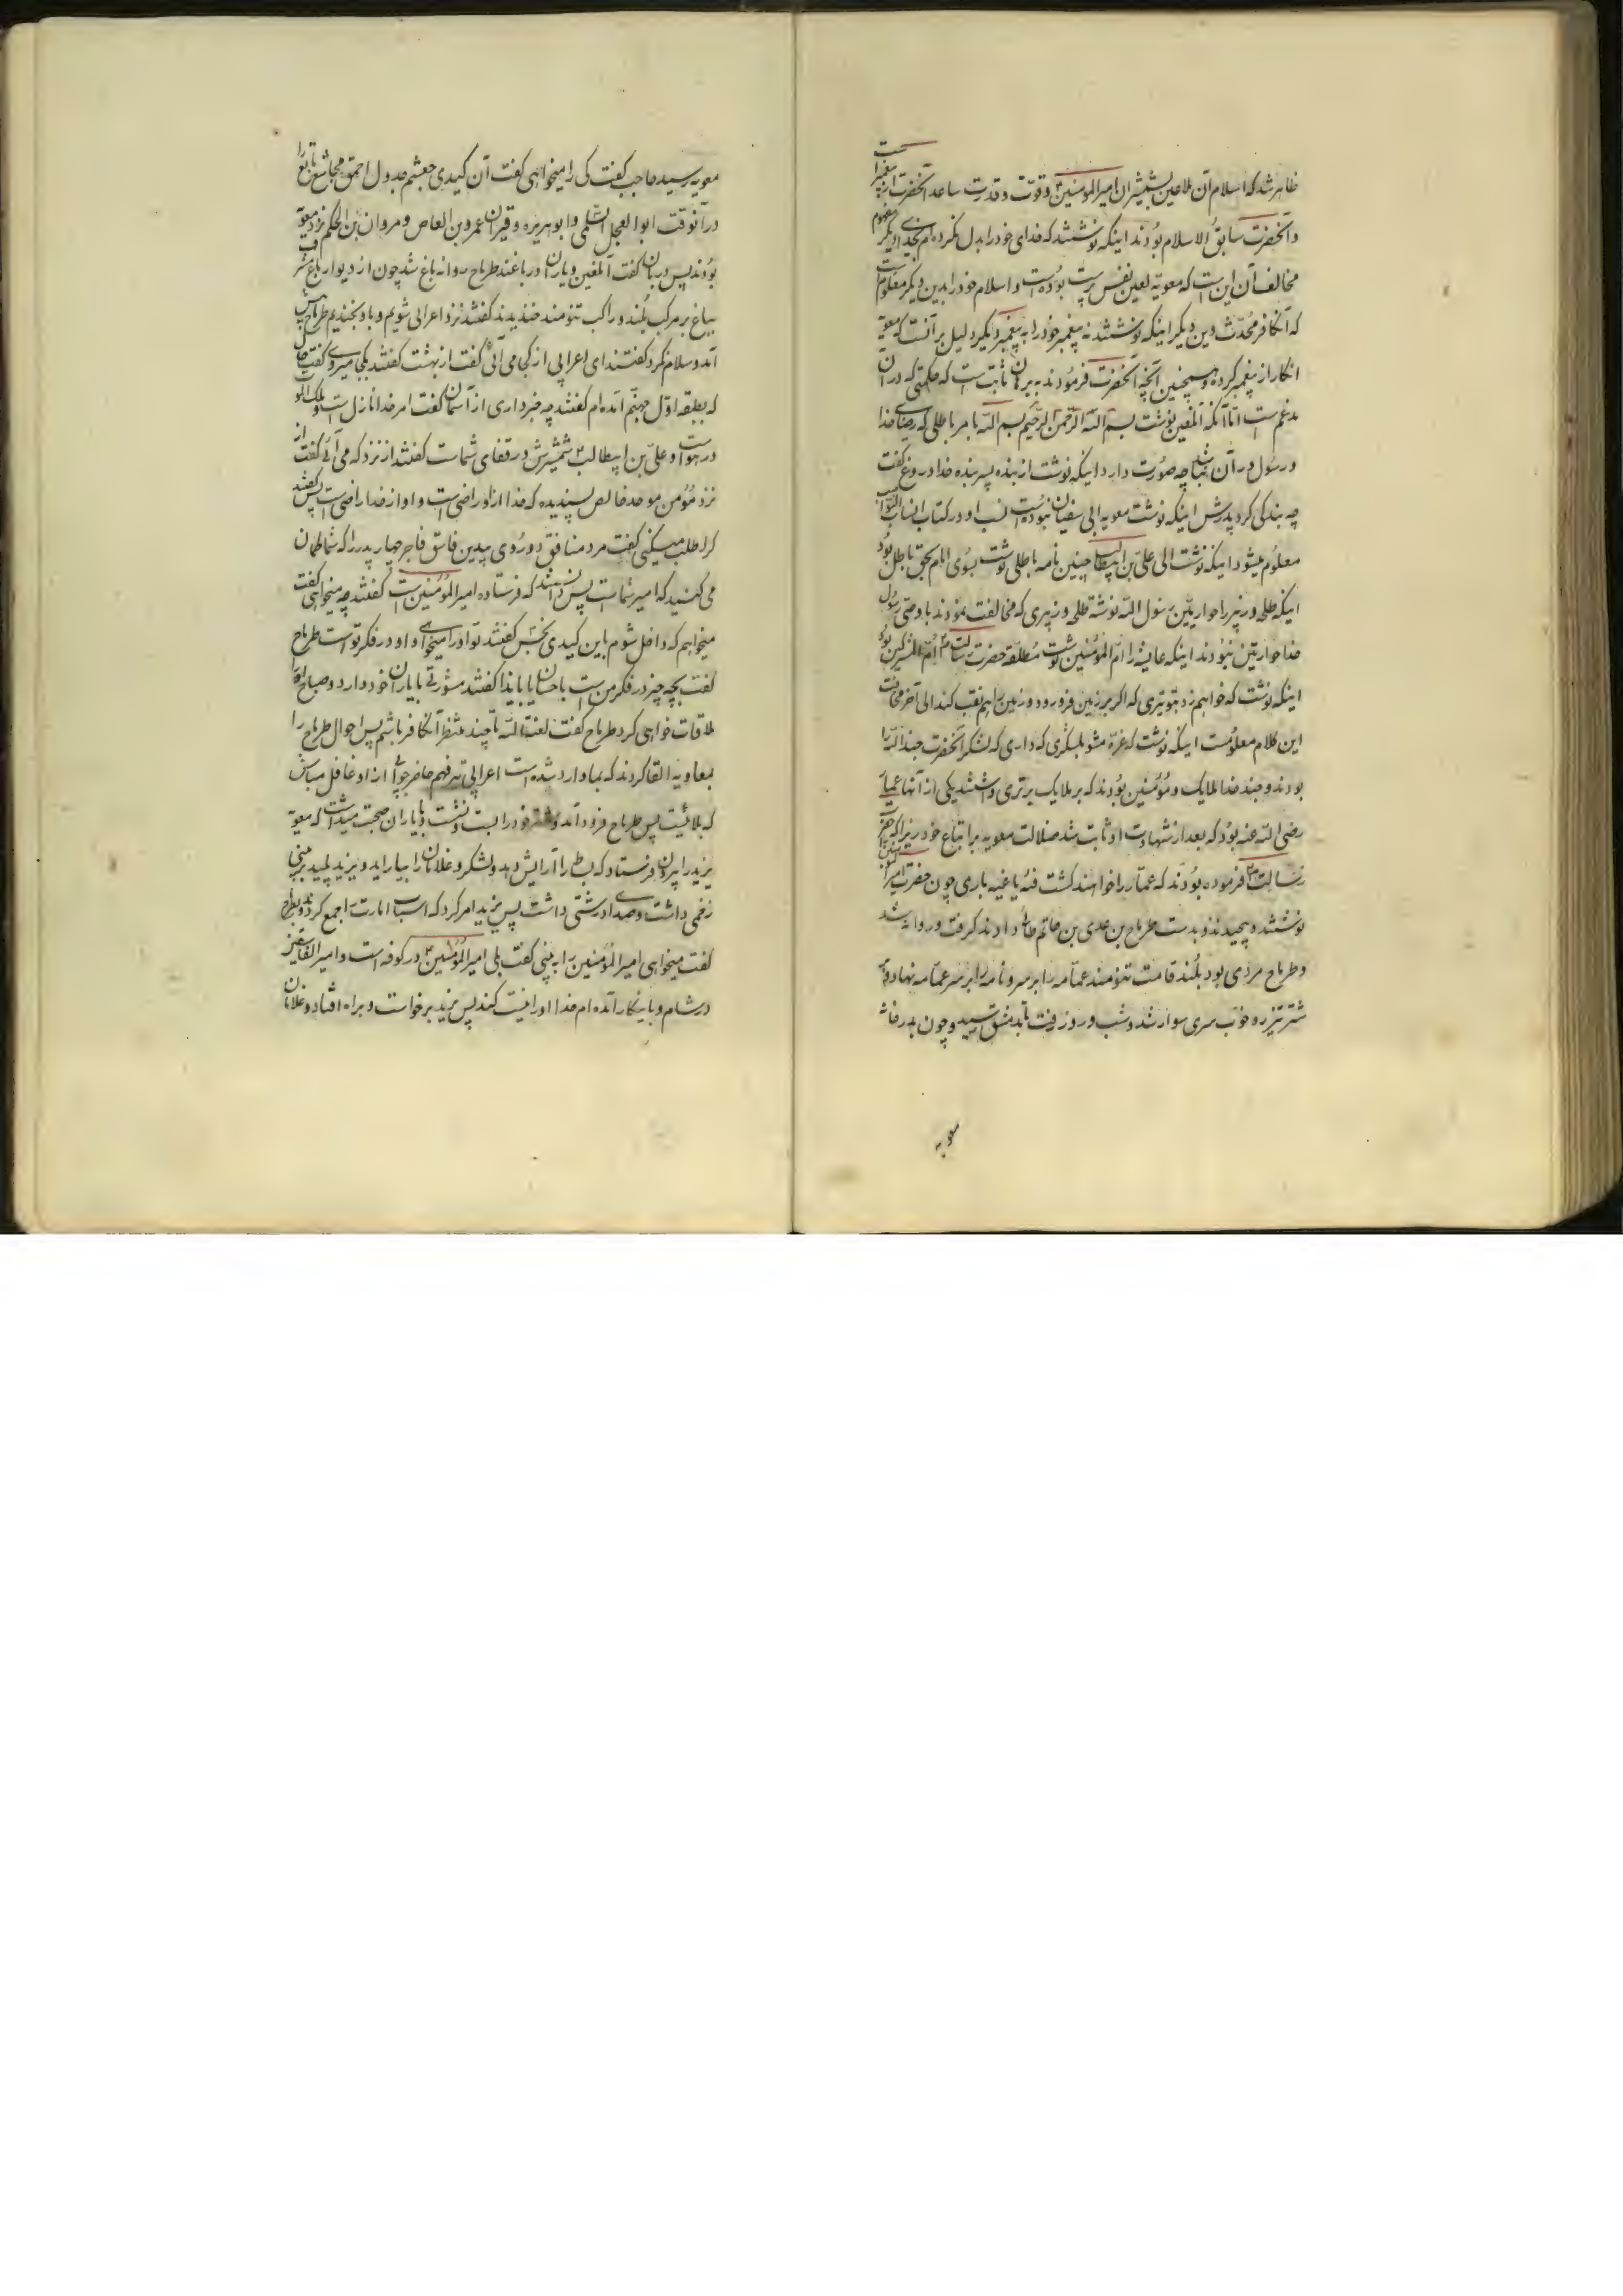 ظاهر شد که اسلام آن ملاعین بشمشیر ان امیرالمؤمنین و قوت و قدرت ساعد آنحضرت است
و آنحضرت سابق الاسلام بودند اینکه نوشتند که خدای خود را بدل نکرده ام بخدای دیگر مفهوم
مخالف آن این است که معویه لعین نفس پرست بوده است و اسلام خود را بدین دیگر معلوم است
که آن کافر محدث دین دیگر اینکه نوشتند نه پیغمبر خود را به پیغمبر دیگر دلیل بر آنست که معویه
انکار از پیغمبر کرده و همچنین آنچه آنحضرت فرمودند به برهان ثابت است که حکمتی که در آن
مدغم است اما آنکه آن لعین نوشت بسم الله الرحمن الرحیم بسم الله بامر باطلی که رضای خدا
و رسول در آن نباشد چه صورت دارد اینکه نوشت از بنده پسر بنده خدا دروغ گفت
چه بندگی کرد پدرش اینکه نوشت معویه ابی سفیان نبوده است نسب او در کتاب انساب النواصب
معلوم میشود اینکه نوشت الی علی بن ابیطالب چنین نامه باطلی نوشت بسوی امام بحق باطل بود
اینکه طلحه و زبیر را حواریین رسول الله نوشته طلحه و زبیری که مخالفت نمودند با وصی رسول
خدا حواریین نبودند اینکه عایشه را ام المؤمنین نوشت مطلقه حضرت رسالت ام المشرکین بود
اینکه نوشت که خواهم زد بتو تیری که اگر بر زمین فرو رود و زمین را هم نقب کند الی آخر
این کلام معلومست اینکه نوشت که غره مشو بلشکری که داری که لشکر آنحضرت جند الله را
بودند و جند خدا ملایک و مؤمنین بودند که بر ملایک برتری داشتند یکی از آنها عمار
رضی الله عنه بود که بعد از شهادت او ثابت شد ضلالت معویه بر اتباع خود زیرا که حضرت
رسالت فرموده بودند که عمار را خواهند کشت فئه باغیه باری چون حضرت امیرالمؤمنین
نوشتند و پیچیدند و بدست طرماح بن عدی بن حاتم طائی دادند گرفت و روانه شد
و طرماح مردی بود بلند قامت تنومند عمامه را بر سر و نامه را بر سر عمامه نهاد و بر
شتر تیزرو خوب سری سوار شد و شب و روز رفت تا بدمشق رسید و چون بدر خانه
معویه
معویه رسید حاجب گفت کی را میخواهی گفت آن کیدی جعشم جدول احمق مجاشع
در آنوقت ابوالعجل السلمی و ابوهریره و قیران عمرو بن العاص و مروان بن الحکم نزد معویه
بودند پس دربان گفت آن لعین و یاران او در باغند طرماح روانه باغ شد چون از دیوار باغ
بباغ بر مرکب بلند و راکب تنومند خندیدند گفتند نزد اعرابی شویم و باو بخندیم طرماح پیش
آمد و سلام کرد گفتند ای اعرابی از کجا می آئی گفت از بهشت گفتند بکجا میروی گفت
که بطبقه اول جهنم آمده ام گفتند چه خبر داری از آسمان گفت امر خدا نازل است و ملک الموت
در هوا و علی بن ابیطالب شمشیرش در قفای شماست گفتند از نزد که می آئی گفت از
نزد مؤمن موحد خالص پسندیده که خدا از او راضی است و او از خدا راضی است پس گفتند
که را طلب میکنی گفت مرد منافق دوروی بیدین فاسق فاجر چهار پدر را که شما گمان
می کنید که امیر شماست پس دانستند که فرستاده امیرالمؤمنین است گفتند چه میخواهی گفت
میخواهم که داخل شوم باین کیدی نجس گفتند تو او را میخواهی و او در فکر توست طرماح
گفت بچه چیز در فکر من است باحسان یا بایذا گفتند مشورتی با یاران خود دارد و صباح او را
ملاقات خواهی کرد طرماح گفت لعنة الله تا چند منتظر آن کافر باشم پس احوال طرماح را
بمعاویه القا کردند که بما وارد شده است اعرابی تیز فهم حاضر جوابی از او غافل مباش
که بلائیست پس طرماح فرود آمد و شتر خود را بست و نشست و با یاران صحبت میداشت که معویه
یزید را بیرون فرستاد که بساط را آرایش دهد و لشکر و غلامان را بیاراید و یزید پلید بر بینی
زخمی داشت و صدای درشتی داشت پس یزید امر کرد که اسباب امارت را جمع کردند و بطرماح
گفت میخواهی امیرالمؤمنین را به بینی گفت بلی امیرالمؤمنین در کوفه است و امیر الفاسقین
در شام و باینکار آمده ام خدا او را نیست کند پس یزید برخواست و براه افتاد و غلامان